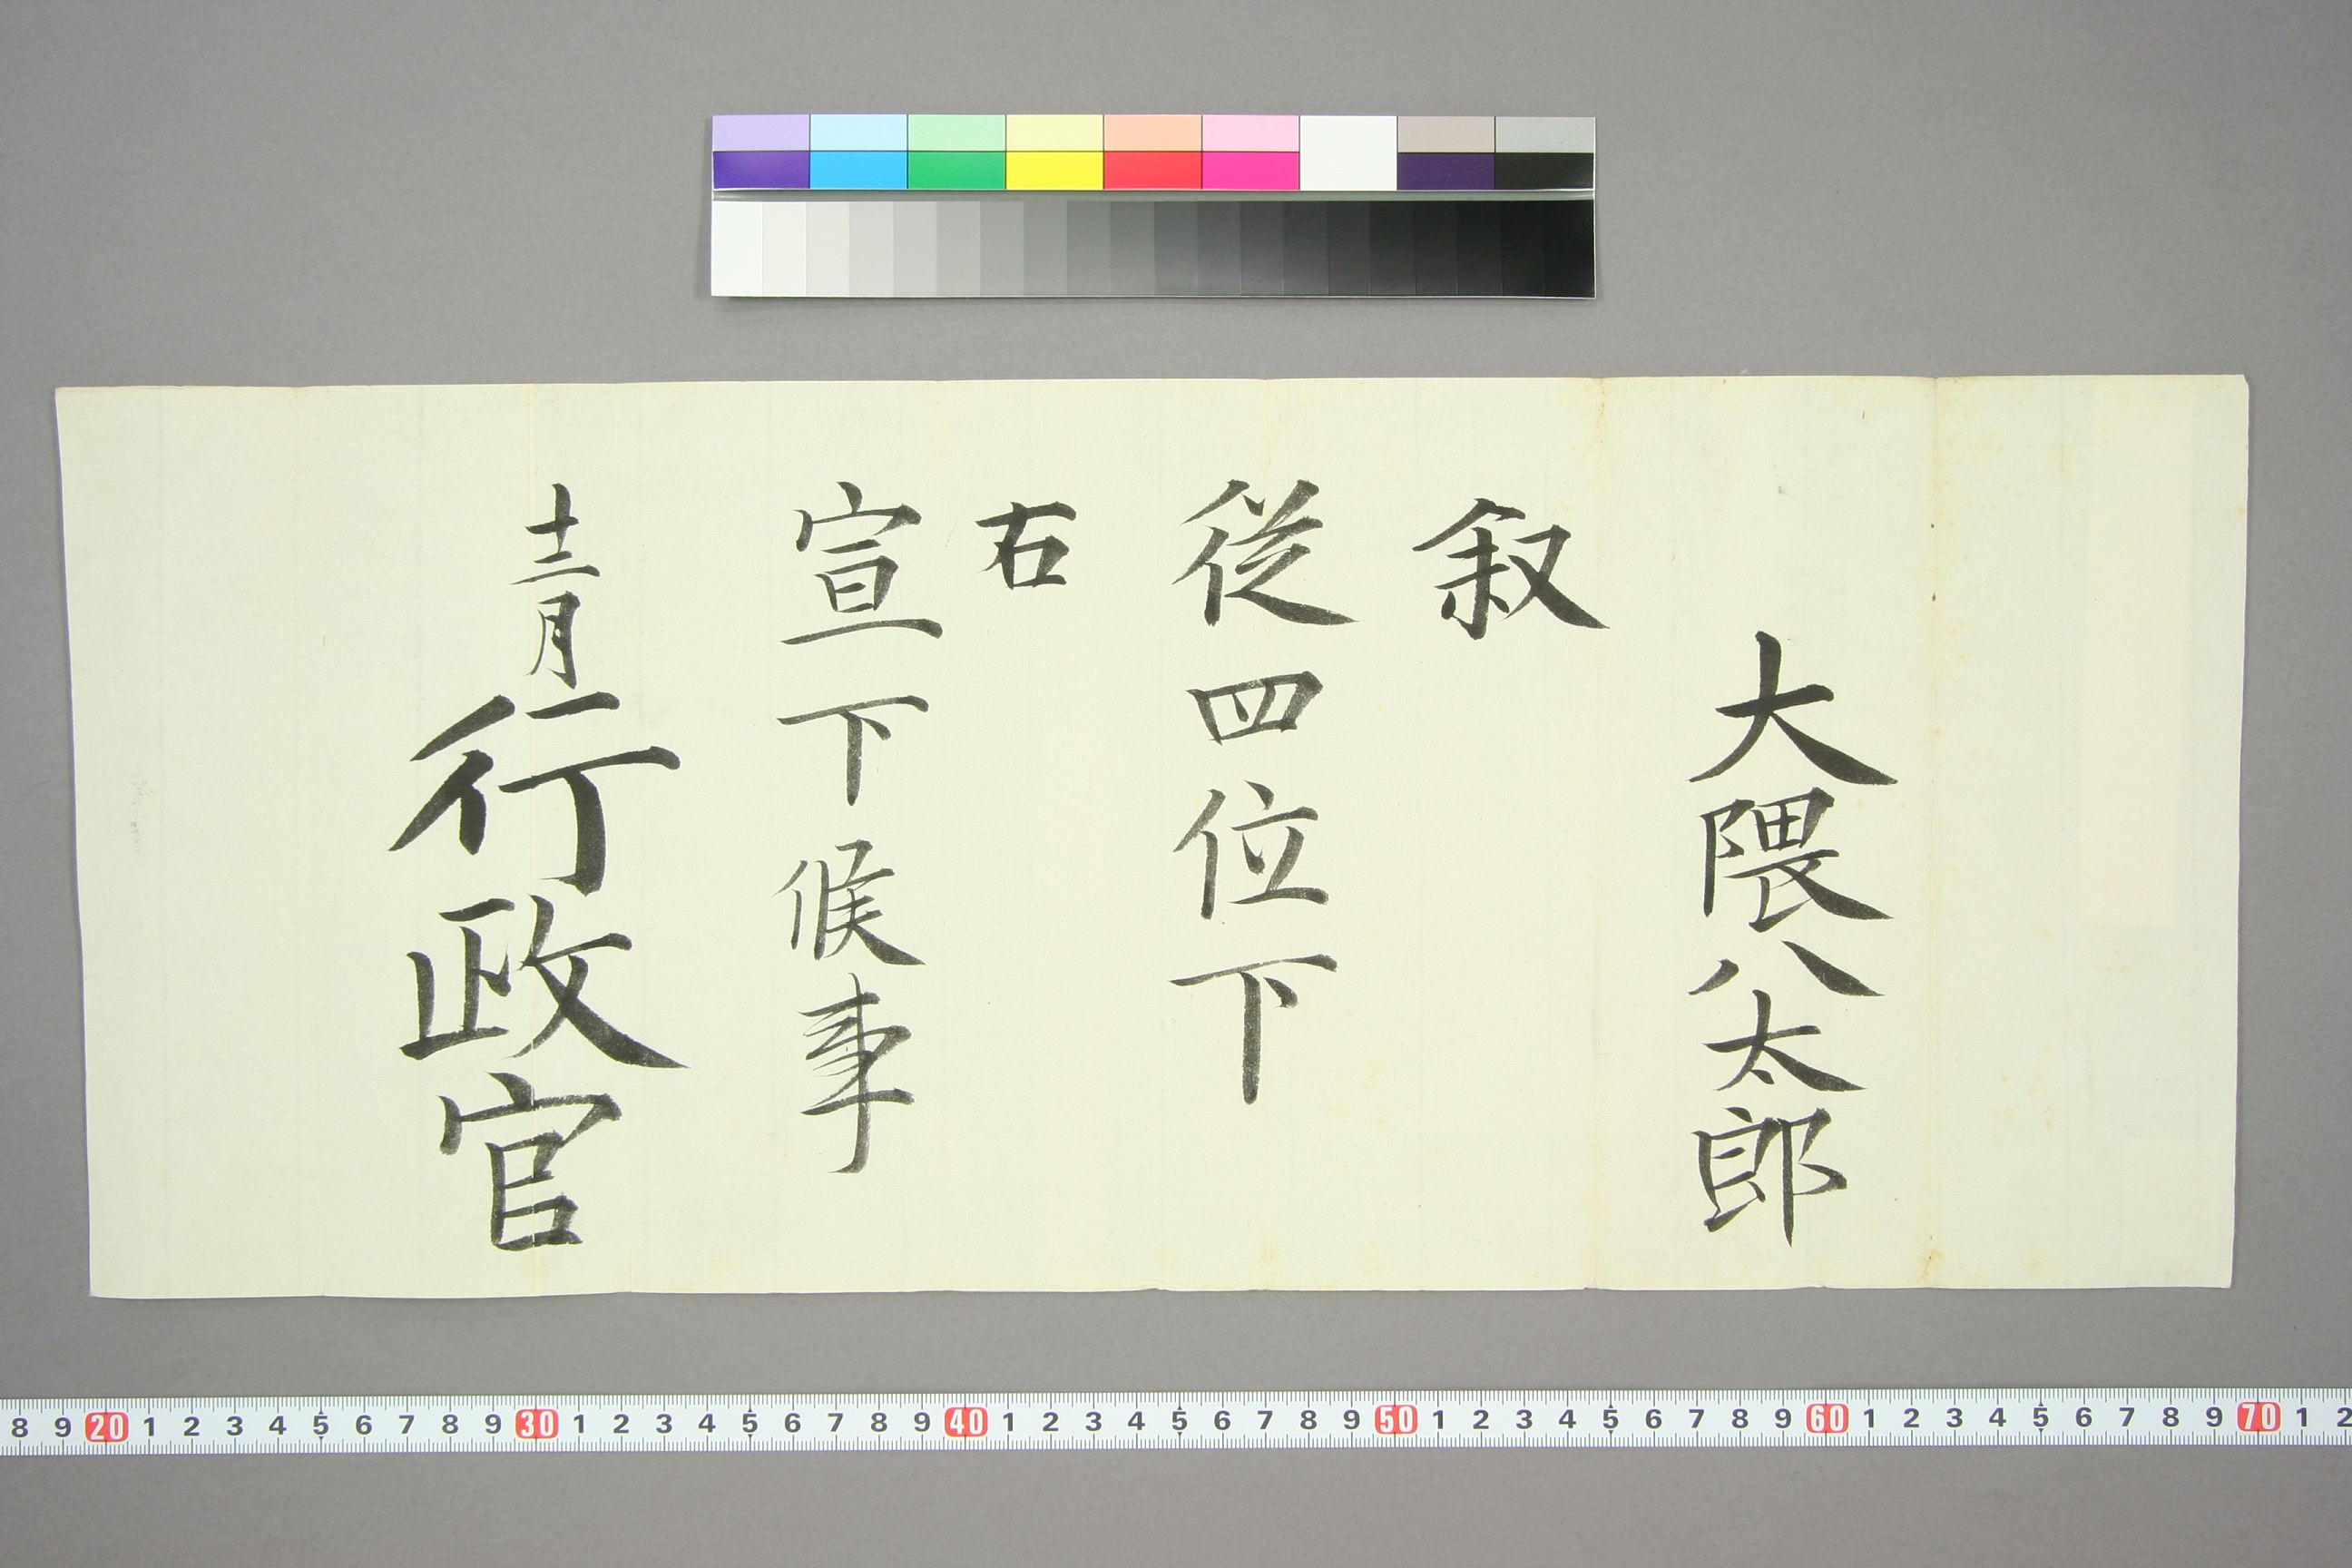 大隈八太郎
叙
従四位下
右
宣下候事
十二月
行政官
8 9 20 1 2 3 4 5 6 7 8 9 30 1 2 3 4 5 6 7 8 9 40 1 2 3 4 5 6 7 8 9 50 1 2 3 4 5 6 7 8 9 60 1 2 3 4 5 6 7 8 9 70 1 2